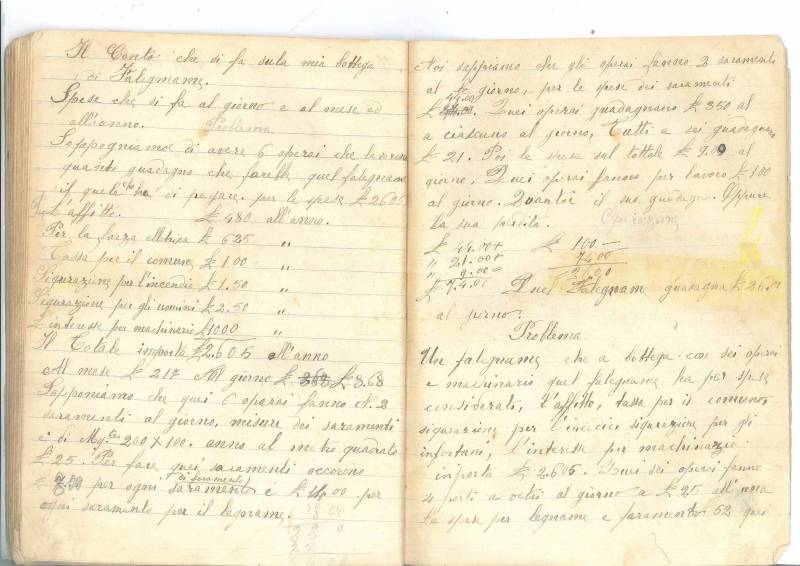 Il Conto che si fa sula mia bottega
di Falegname.
Spese che si fa al giorno e al mese ed
all'anno. Problema
Soppogniamo di avere 6 operai che lavorano
quanto guadagno che farebbe quel falegname
il quale ha di pagare per le spese £ 2605
L'affitto. £ 480 all'anno.
Per la forza elletrica £ 625 "
Tassa per il comune £ 100 "
Sigurazione per l'incendio £ 1.50 "
Sigurazione per gli uomini £ 2.50 "
L'interesse per machinario £ 1000 "
Il Totale importa £ 2.605 all'anno
Al mese £ 217 Al giorno £ 8.68
Sopponiamo che quei 6 operai fanno N. 2
saramenti al giorno, misure dei saramenti
è di 200 X 100. anno al metro quadrato
£ 25. Per fare quei saramenti occoreno
di saramento
£ per ogni saramento è £ 00 per
ogni saramento per il legname.
Noi soppiamo che gli operai fanno 2 saramenti
al giorno, per le spese dei saramenti
44.00
£ Quei operai guadagnano £ 350 al
a ciascuno al giorno, Tutti a sei guadagnano
£ 21. Poi le spese sul tottale £ 9.00 al
giorno. Quei operai fanno per lavoro £ 100
al giorno. Quantoè il suo guadagno. Oppure
la sua perdita. Operazione
£ 44.00 + £ 100 —
" 21.00 + 74.00
" 9.00 = 26.00
£ 74.00 Quel Falegname guadagna £ 26
al giorno.
Problema
Un falegname che a bottega con sei operai
e machinario quel falegname ha per spese
considerati, l'affitto, tassa per il comune,
sigurazione per l' sigurazione per gli
infortuni, l'interesse per machinario
inporta £ 2.605. Quei sei operai fanno
4 porti a al giorno a £ 25 all'una
la spese per legname e faramento 52 quei